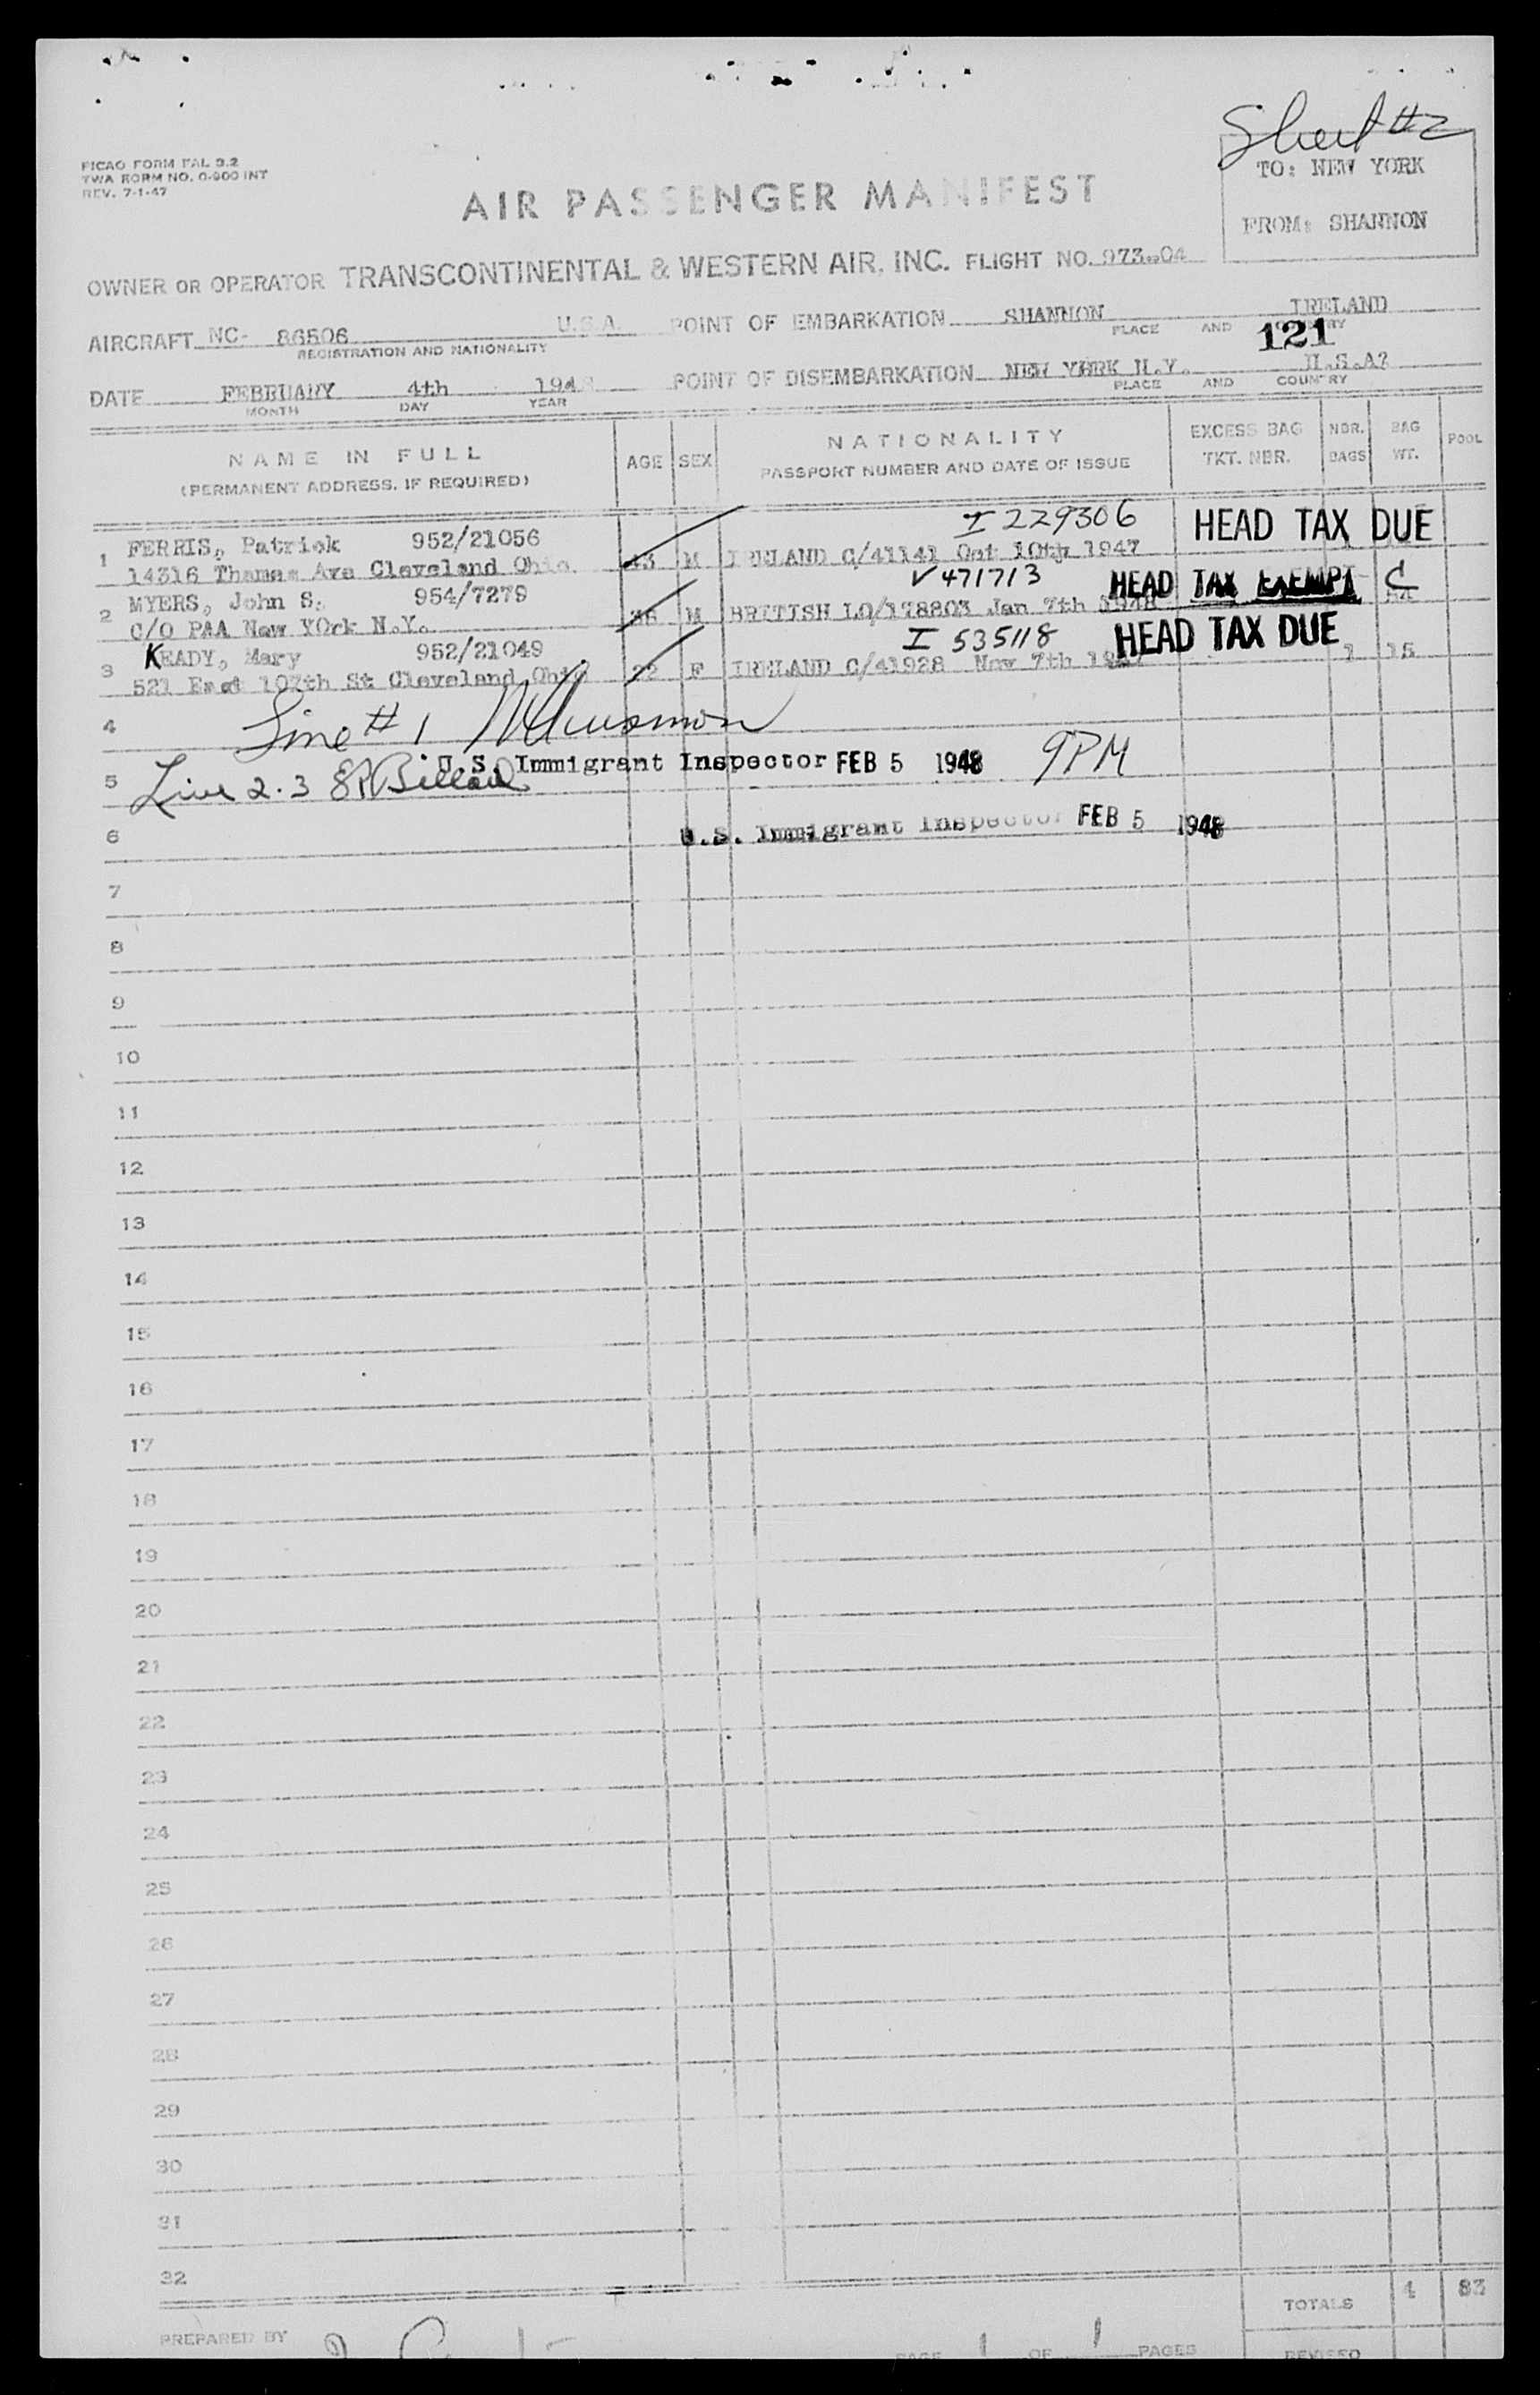 Sheet #2
PICAO FORM FAL 3.2
TWA FORM NO. O-900 INT
REV. 7-1-47
TO: NEW YORK
FROM: SHANNON
AIR PASSENGER MANIFEST
OWNER OR OPERATOR TRANSCONTINENTAL & WESTERN AIR, INC. FLIGHT NO. 973-04
AIRCRAFT NC- 86506 U.S.A. POINT OF EMBARKATION SHANNON IRELAND
REGISTRATION AND NATIONALITY PLACE AND
121
DATE FEBRUARY 4th 1948 POINT OF DISEMBARKATION NEW YBRK N.Y. U.S.A?
MONTH DAY YEAR PLACE AND COUNTRY
NAME IN FULL AGE SEX NATIONALITY EXCESS BAG NBR. BAG POOL
(PERMANENT ADDRESS, IF REQUIRED) PASSPORT NUMBER AND DATE OF ISSUE TKT. NBR. BAGS WT.
I 229306 HEAD TAX DUE
1 FERRIS, Patrick 952/21056
14316 Thames Ave Cleveland Ohio. 43 M IRELAND C/41141 Oct 10th 1947
V 471713 HEAD TAX EXEMPT C
2 MYERS, John S. 954/7279
C/O PAA New YOrk N.Y. 36 M BRITISH LO/178803 Jan 7th 1948
I 535118 HEAD TAX DUE
3 KEADY, Mary 952/21049
521 East 107th St Cleveland Ohio 22 F IRELAND C/41928 Nov 7th 1 15
4 Line # 1
U.S. Immigrant Inspector FEB 5 1948 9PM
5 Line 2.3
6 U.S. Immigrant Inspector FEB 5 1948
7
8
9
10
11
12
13
14
15
16
17
18
19
20
21
22
23
24
25
26
27
28
29
30
31
32
TOTALS 4 83
PREPARED BY PAGE 1 OF 1 PAGES REVISED